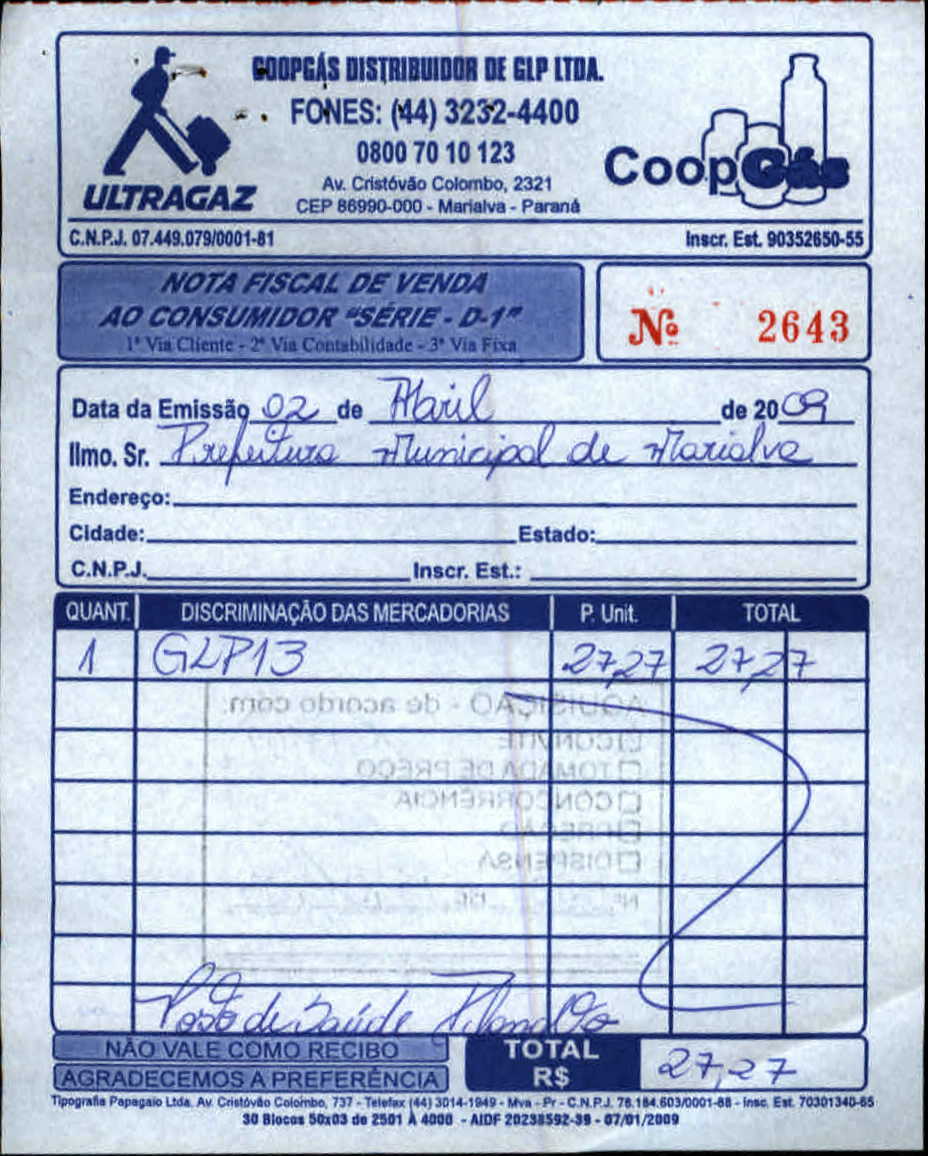 COOPGÁS DISTRIBUIDOR DE GLP LTDA.
FONES: (44) 3232-4400
0800 70 10 123
Av. Cristóvão Colombo, 2321
CEP 86990-000 - Marialva - Paraná
ULTRAGAZ
CoopGás
C.N.P.J. 07.449.079/0001-81
Inscr. Est. 90352650-55
NOTA FISCAL DE VENDA
AO CONSUMIDOR "SÉRIE - D-1"
1ª Via Cliente - 2ª Via Contabilidade - 3ª Via Fixa
Nº 2643
Data da Emissão 02 de Abril de 2009
Ilmo. Sr. Prefeitura Municipal de Marialva
Endereço:
Cidade: Estado:
C.N.P.J. Inscr. Est.:
QUANT. DISCRIMINAÇÃO DAS MERCADORIAS P. Unit. TOTAL
1 GLP13 27,27 27,27
AQUISIÇÃO - de acordo com:
CONVITE
TOMADA DE PREÇO
CONCORRÊNCIA
PREGÃO
DISPENSA
Nº
Posto de Saúde
NÃO VALE COMO RECIBO
AGRADECEMOS A PREFERÊNCIA
TOTAL R$ 27,27
Tipografia Papagaio Ltda. Av. Cristóvão Colombo, 737 - Telefax (44) 3014-1949 - Mva - Pr - C.N.P.J. 78.184.603/0001-88 - Insc. Est. 70301340-65
30 Blocos 50x03 de 2501 À 4000 - AIDF 20238592-39 - 07/01/2009